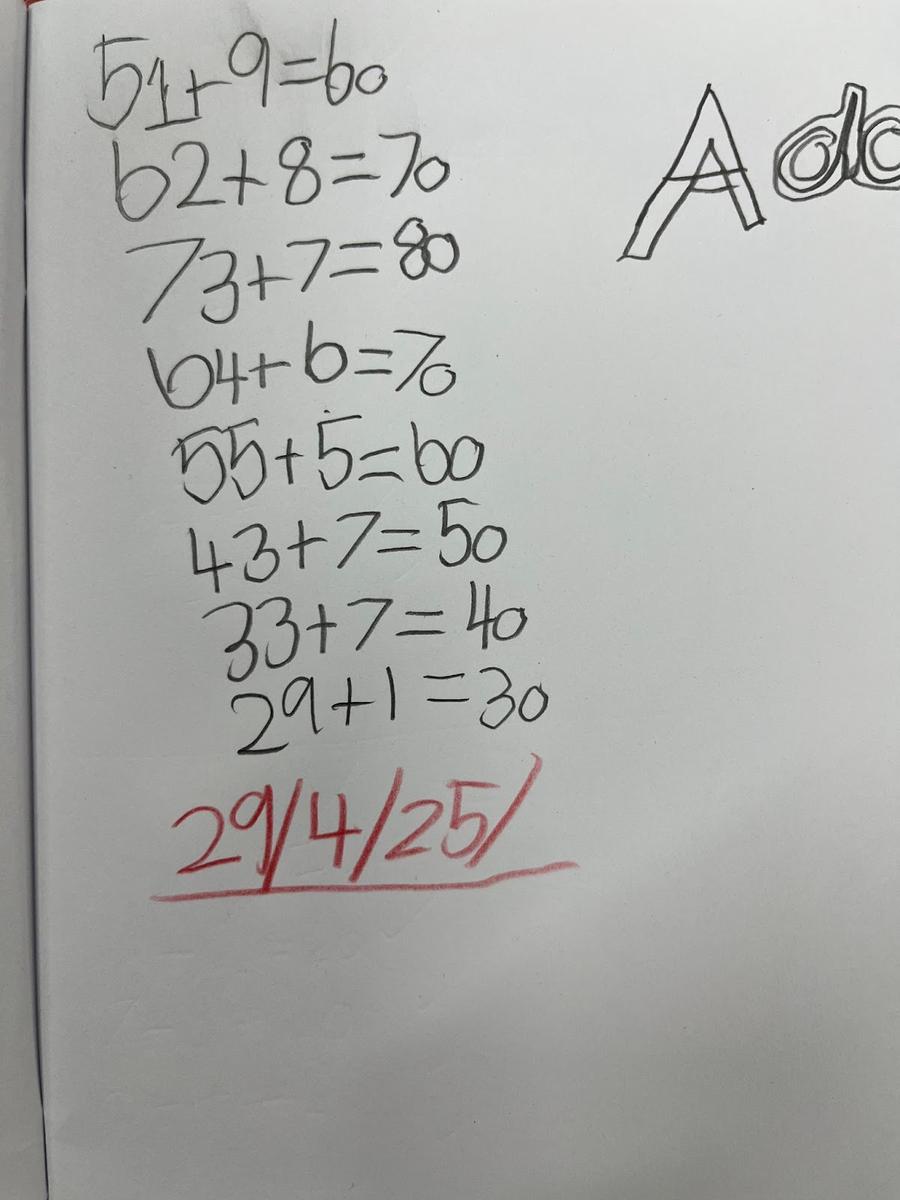 51+9=60
62+8=70
73+7=80
64+6=70
55+5=60
43+7=50
33+7=40
29+1=30
29/4/25/